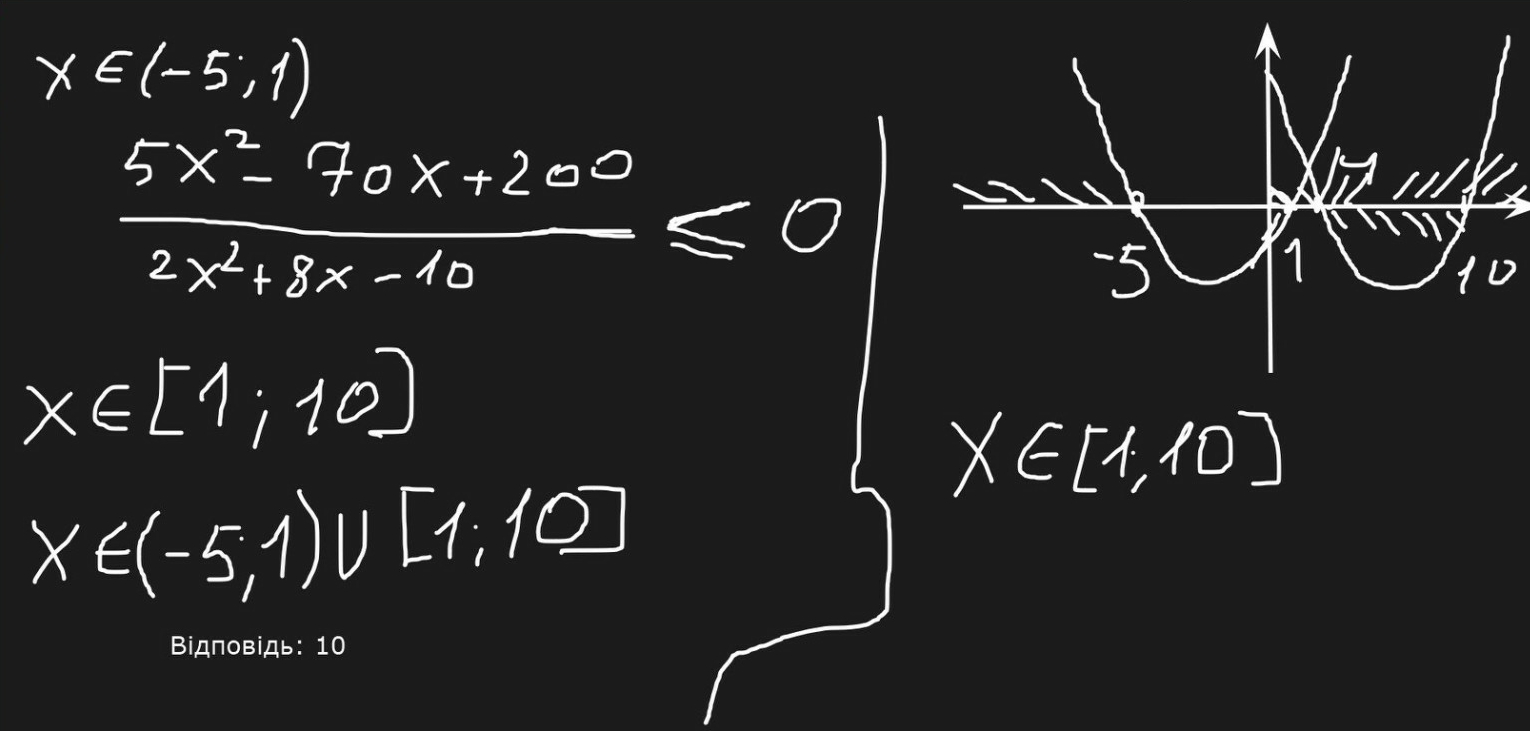 x ∈ (-5; 1)
5x² - 70x + 200
2x² + 8x - 10
≤ 0
x ∈ [1; 10]
x ∈ (-5; 1) ∪ [1; 10]
Відповідь: 10
-5
1
10
x ∈ [1; 10]